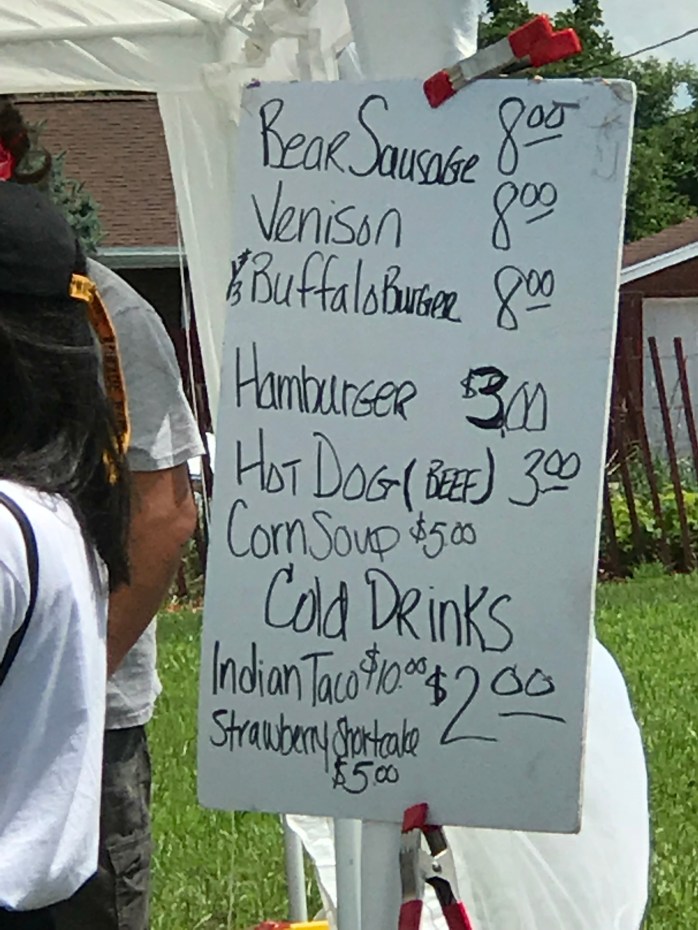 Bear Sausage 8.00
Venison 8.00
Buffalo Burger 8.00
Hamburger $3.00
Hot Dog (Beef) 3.00
Corn Soup $5.00
Cold Drinks
Indian Taco $10.00 $2.00
Strawberry Shortcake
$5.00